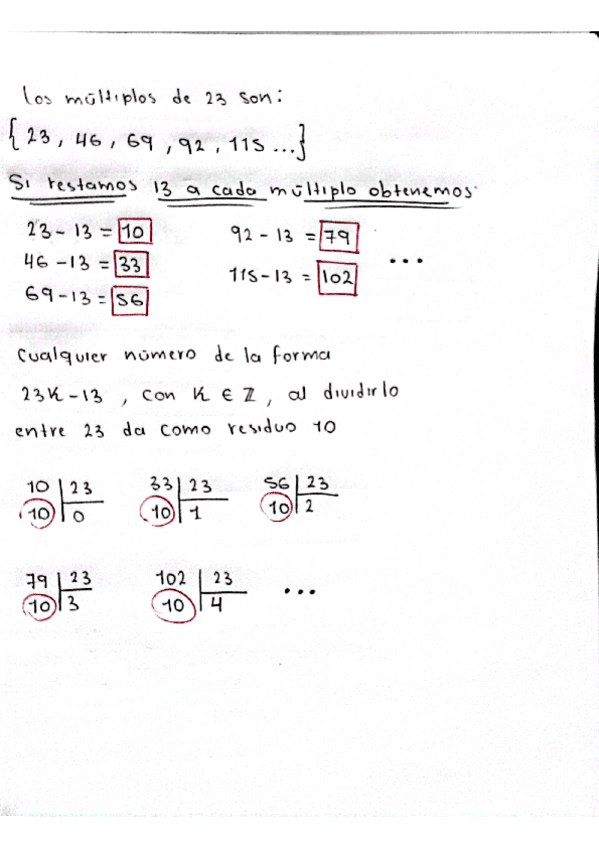 Los múltiplos de 23 son:
{23, 46, 69, 92, 115 ...}
Si restamos 13 a cada múltiplo obtenemos.
23 - 13 = 10
92 - 13 = 79
46 - 13 = 33
...
115 - 13 = 102
69 - 13 = 56
Cualquier número de la forma
23K - 13 , con K ∈ ℤ , al dividirlo
entre 23 da como residuo 10
10 | 23
33 | 23
56 | 23
10 | 0
10 | 1
10 | 2
79 | 23
102 | 23
...
10 | 3
10 | 4